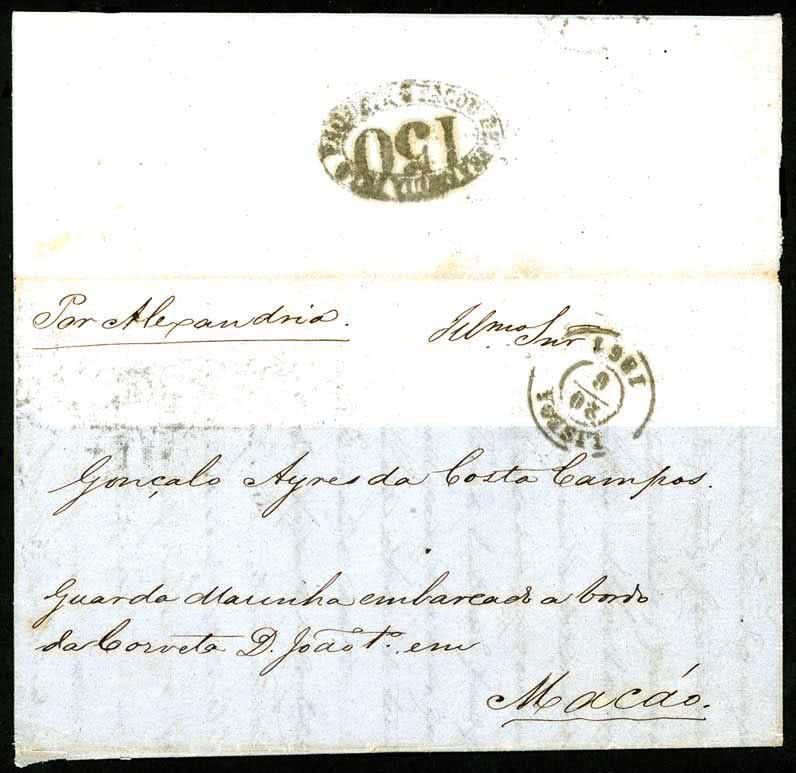 150
Por Alexandria.
Illmo Snr
1861
6
20
LISBOA
Gonçalo Ayres da Costa Campos.
Guarda Marinha embarcado a bordo
da Corveta D. João 1º. em
Macáo.